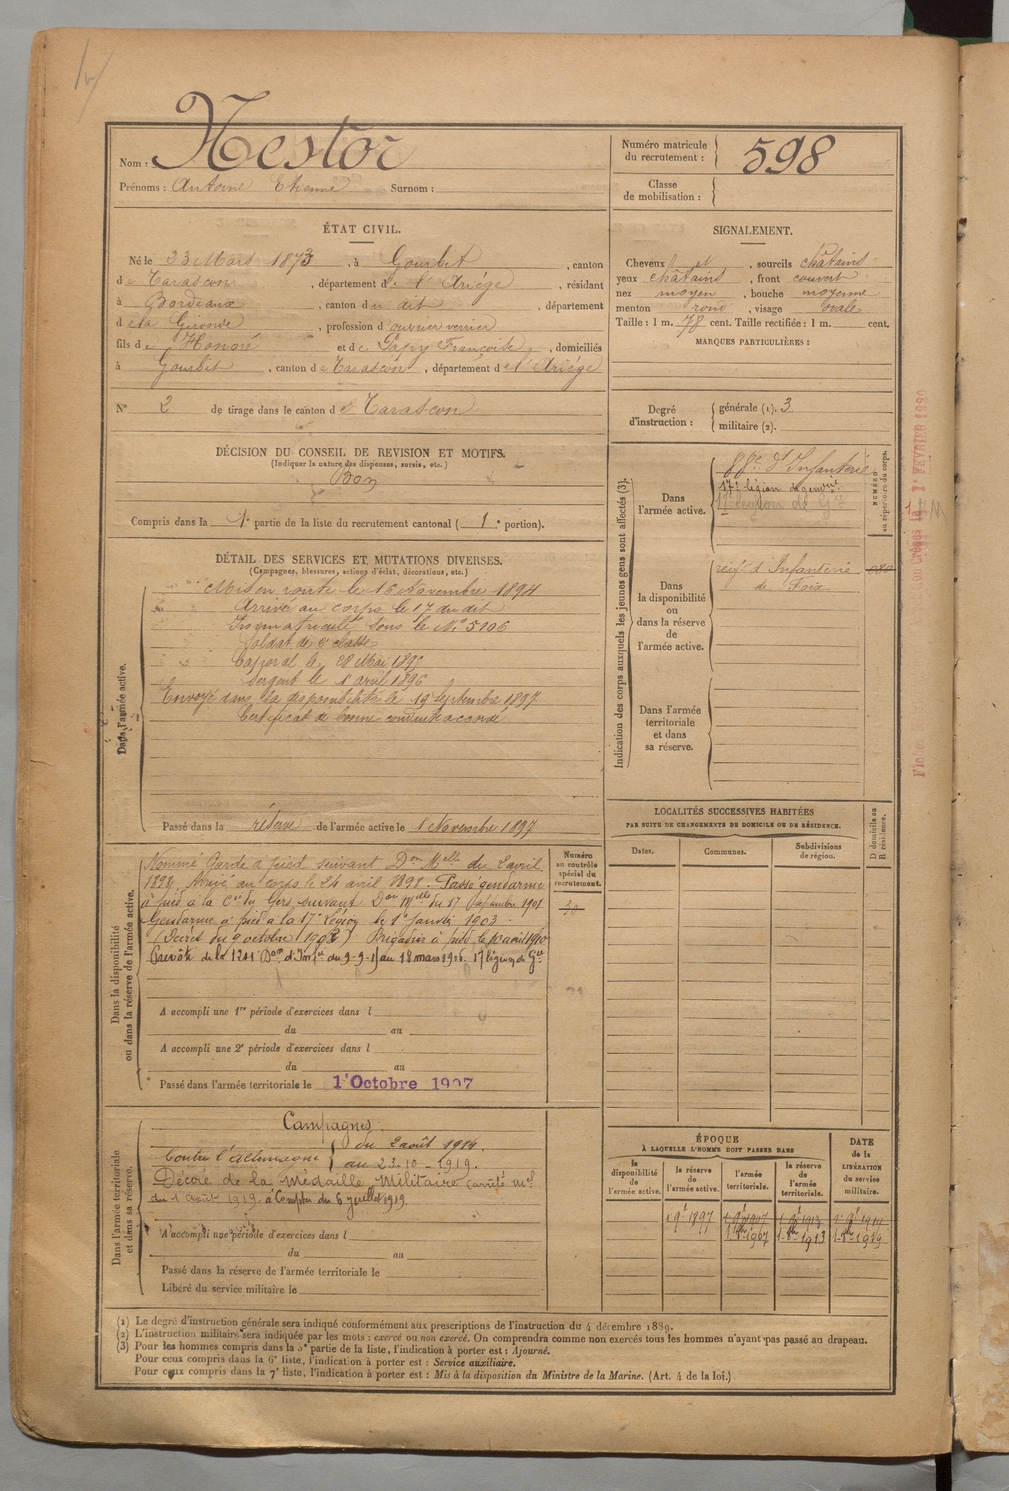 Nom : Nestor
Prénoms : Antoine Etienne Surnom :
Numéro matricule
du recrutement : 598
Classe
de mobilisation :
ÉTAT CIVIL.
Né le 23 Mars 1873, à Gourbit, canton
de Tarascon, département de l'Ariége, résidant
à Bordeaux, canton du dit, département
de la Gironde, profession d'ouvrier verrier
fils de Honoré et de Papy Françoise, domiciliés
à Gourbit, canton de Tarascon, département de l'Ariége
N° 2 de tirage dans le canton de Tarascon
SIGNALEMENT.
Cheveux et, sourcils châtains
yeux châtains, front couvert
nez moyen, bouche moyenne
menton rond, visage ovale
Taille : 1 m. 78 cent. Taille rectifiée : 1 m. cent.
MARQUES PARTICULIÈRES :
Degré
d'instruction :
générale (1). 3
militaire (2).
DÉCISION DU CONSEIL DE REVISION ET MOTIFS.
(Indiquer la nature des dispenses, sursis, etc.)
Bon
Compris dans la 1e partie de la liste du recrutement cantonal (1e portion).
DÉTAIL DES SERVICES ET MUTATIONS DIVERSES.
(Campagnes, blessures, actions d'éclat, décorations, etc.)
Dans l'armée active.
Mis en route le 16 Novembre 1894
Arrivé au corps le 17 du dit
Immatriculé sous le N° 5106
Soldat de 2e classe
Caporal le 28 Mai 1895
Sergent le 1er avril 1896
Envoyé dans la disponibilité le 19 Septembre 1897
Certificat de bonne conduite accordé
Passé dans la réserve de l'armée active le 1er Novembre 1897
Indication des corps auxquels les jeunes gens sont affectés (3).
Dans
l'armée active.
88e d'Infanterie
17e légion de gendie
17e Légion de Gie
NUMÉRO
au répertoire du corps.
Dans
la disponibilité
ou
dans la réserve
de
l'armée active.
régt d'Infanterie
de Foix
Dans l'armée
territoriale
et dans
sa réserve.
LOCALITÉS SUCCESSIVES HABITÉES
PAR SUITE DE CHANGEMENTS DE DOMICILE OU DE RÉSIDENCE.
Dates.
Communes.
Subdivisions
de région.
D domicile ou
R résidence.
Dans la disponibilité
ou dans la réserve de l'armée active.
Nommé Garde à pied suivant Don Melle du 2 avril
1898. Arrivé au corps le 24 avril 1898. Passé gendarme
à pied à la Cie du Gers suivant Don Mlle du 17 Septembre 1901
Gendarme à pied à la 17e Légion le 1er Janvier 1903
(Décret du 9 octobre 1902) Brigadier à pied le 10 avril 1910
Prévôté de la
au 18 mars 1916. 17e légion de Gie
Numéro
au contrôle
spécial du
recrutement.
A accompli une 1re période d'exercices dans l
du au
A accompli une 2e période d'exercices dans l
du au
Passé dans l'armée territoriale le 1er Octobre 1907
Dans l'armée territoriale
et dans sa réserve.
Campagnes :
Contre l'Allemagne
du 2 août 1914.
au 23-10-1919.
Décoré de la Médaille Militaire (arrêté mel
du 1 août 1919. à Compter du 6 juillet 1919.
A accompli une période d'exercices dans l
du au
Passé dans la réserve de l'armée territoriale le
Libéré du service militaire le
ÉPOQUE
À LAQUELLE L'HOMME DOIT PASSER DANS
la
disponibilité
de
l'armée active.
la réserve
de
l'armée active.
l'armée
territoriale.
la réserve
de
l'armée
territoriale.
DATE
de la
LIBÉRATION
du service
militaire.
(1) Le degré d'instruction générale sera indiqué conformément aux prescriptions de l'instruction du 4 décembre 1889.
(2) L'instruction militaire sera indiquée par les mots : exercé ou non exercé. On comprendra comme non exercés tous les hommes n'ayant pas passé au drapeau.
(3) Pour les hommes compris dans la 5e partie de la liste, l'indication à porter est : Ajourné.
Pour ceux compris dans la 6e liste, l'indication à porter est : Service auxiliaire.
Pour ceux compris dans la 7e liste, l'indication à porter est : Mis à la disposition du Ministre de la Marine. (Art. 4 de la loi.)